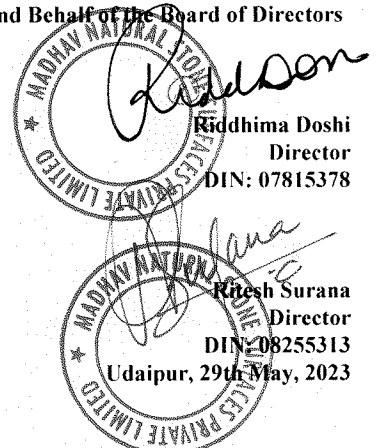 nd Behalf of the Board of Directors
MADHAV NATURAL STONE SURFACES PRIVATE LIMITED
Riddhima Doshi
Director
DIN: 07815378
MADHAV NATURAL STONE SURFACES PRIVATE LIMITED
Ritesh Surana
Director
DIN: 08255313
Udaipur, 29th May, 2023